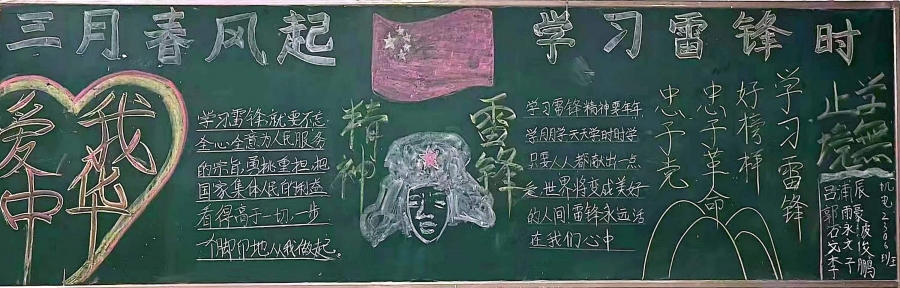 三月春风起
学习雷锋时
我爱中华
学习雷锋就要不忘
全心全意为人民服务
的宗旨,勇挑重担,把
国家集体人民的利益
看得高于一切,一步
一个脚印地从我做起。
雷锋
精神
学习雷锋精神要年年
学月月学天天学时时学
只要人人都献出一点
爱,世界将变成美好
的人间雷锋永远活
在我们心中
学习雷锋
好榜样
忠于革命
忠于党
学無
止境